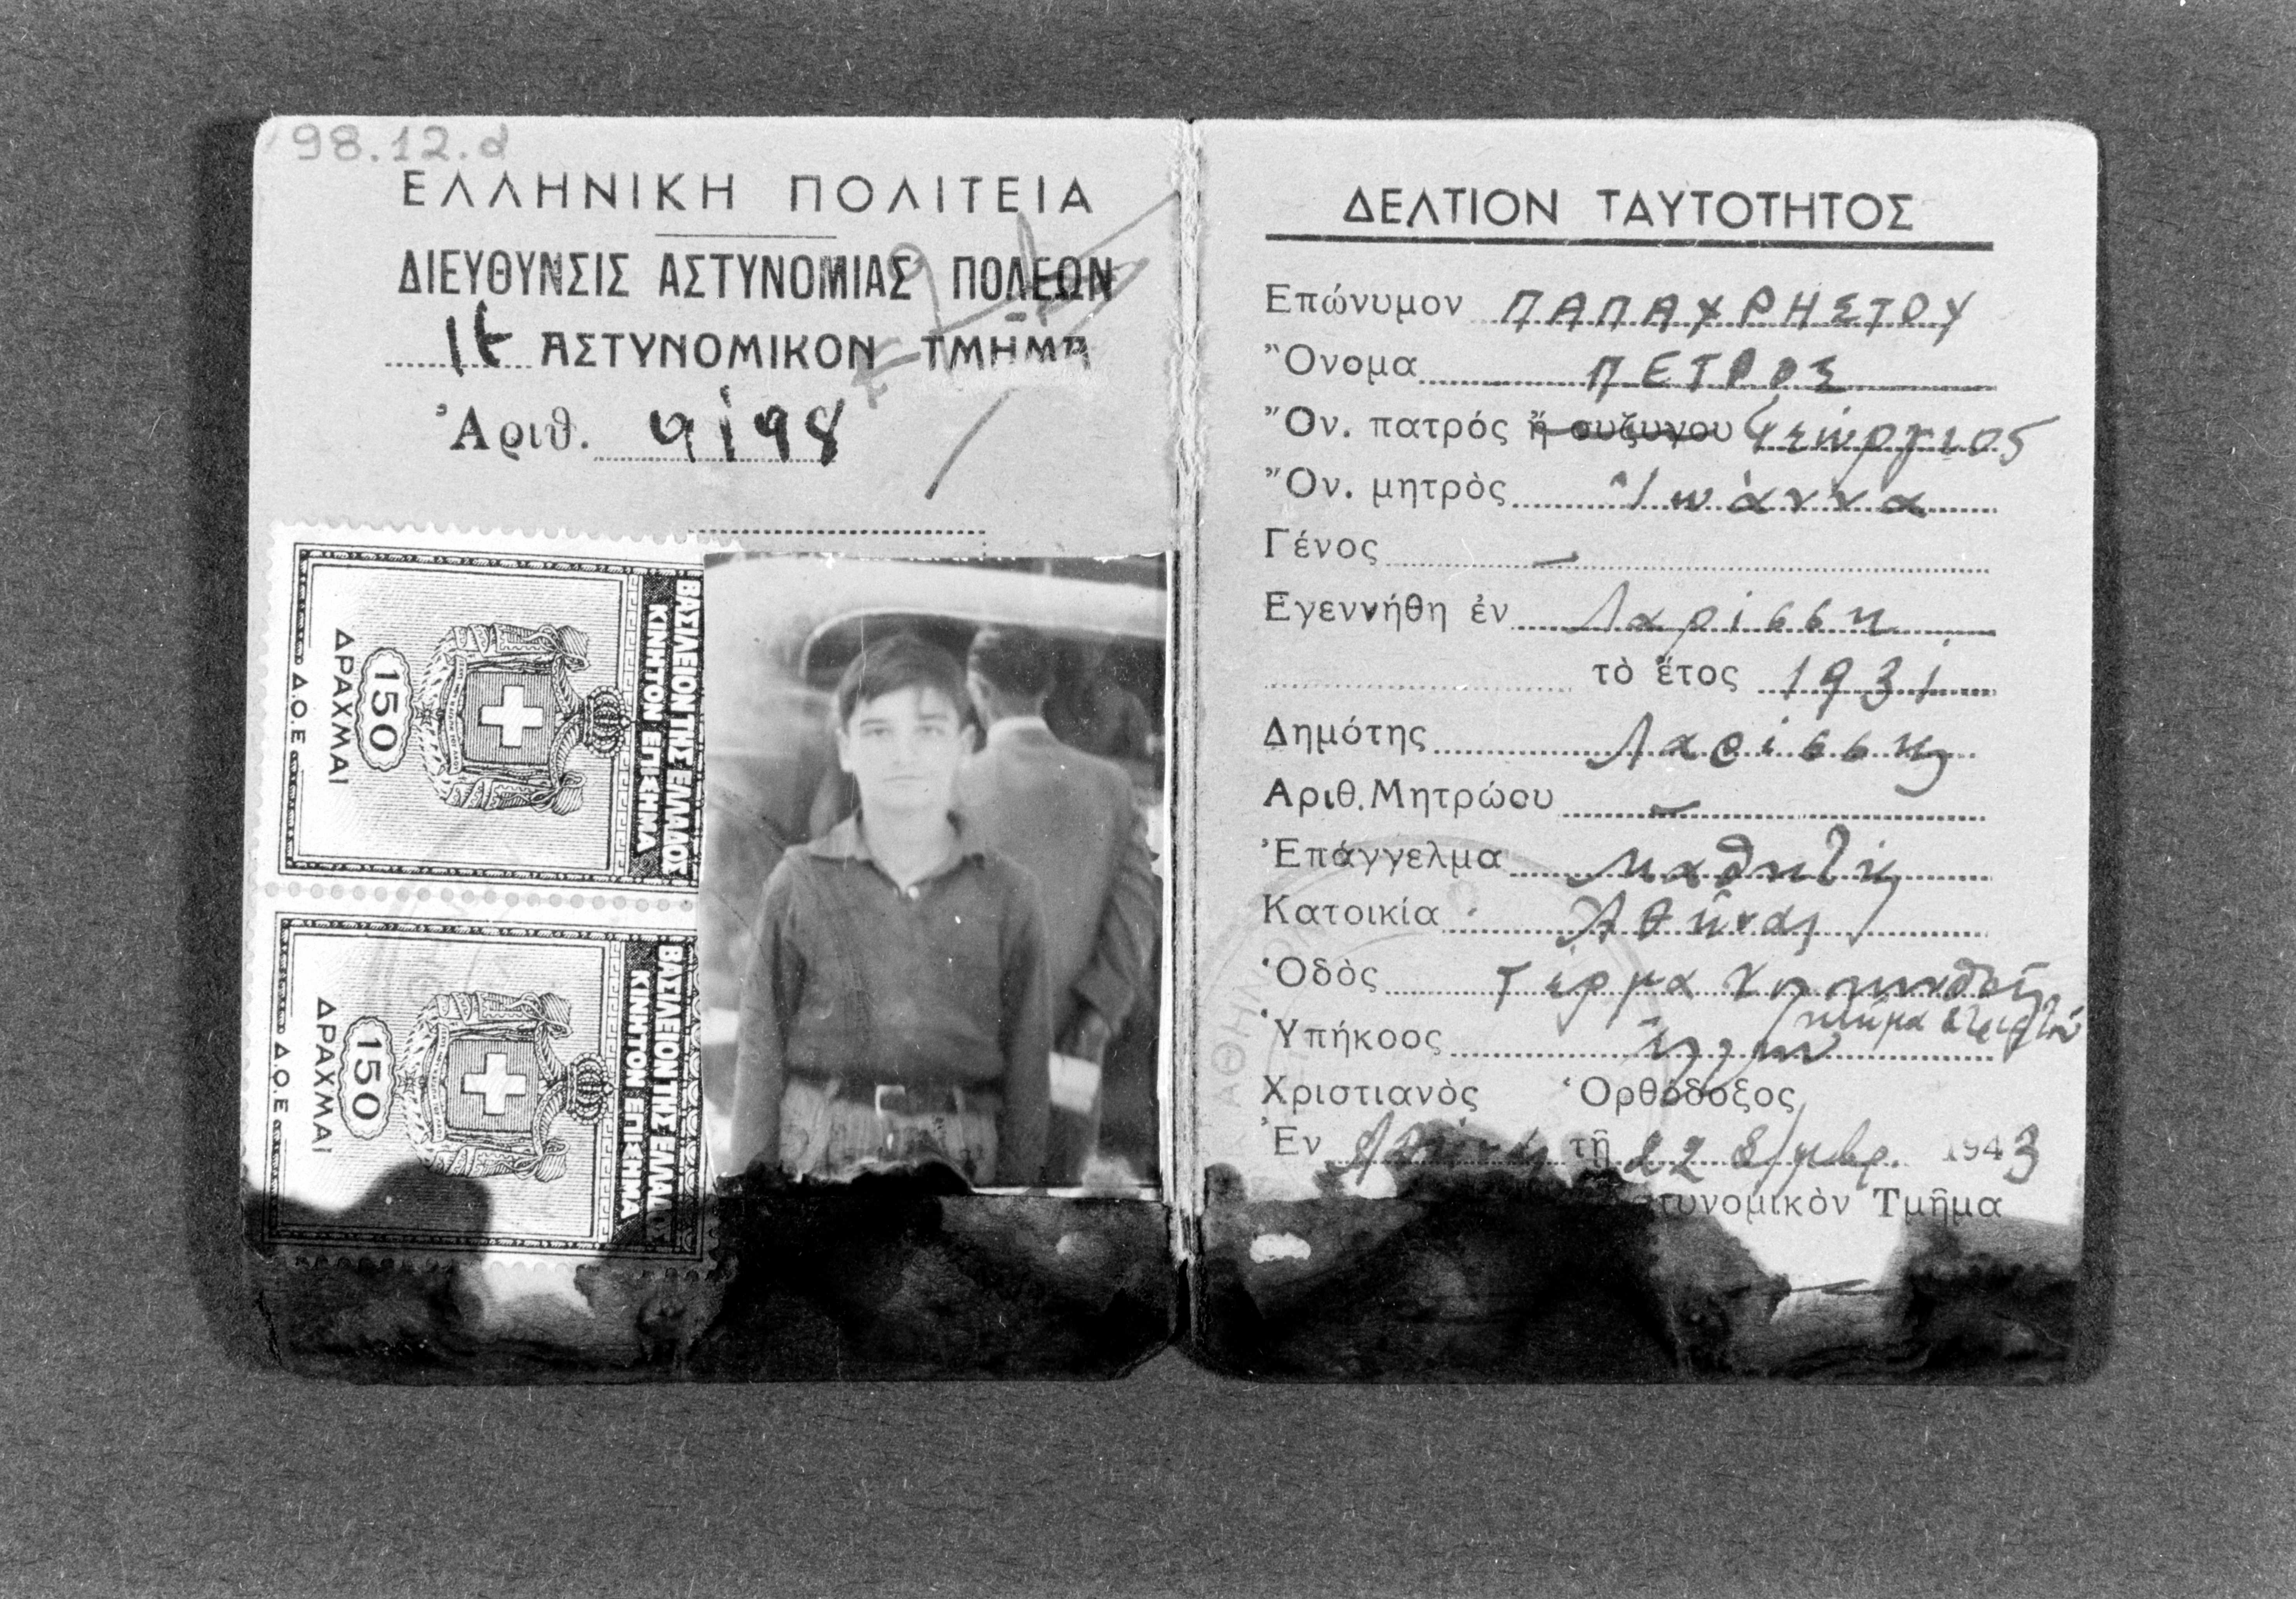 98.12.α
ΕΛΛΗΝΙΚΗ ΠΟΛΙΤΕΙΑ
ΔΙΕΥΘΥΝΣΙΣ ΑΣΤΥΝΟΜΙΑΣ ΠΟΛΕΩΝ
ΑΣΤΥΝΟΜΙΚΟΝ ΤΜΗΜΑ
Ἀριθ.
ΒΑΣΙΛΕΙΟΝ ΤΗΣ ΕΛΛΑΔΟΣ
ΚΙΝΗΤΟΝ ΕΠΙΣΗΜΑ
150
ΔΡΑΧΜΑΙ
Δ.Ο.Ε
ΒΑΣΙΛΕΙΟΝ ΤΗΣ ΕΛΛΑΔΟΣ
ΚΙΝΗΤΟΝ ΕΠΙΣΗΜΑ
150
ΔΡΑΧΜΑΙ
Δ.Ο.Ε
ΔΕΛΤΙΟΝ ΤΑΥΤΟΤΗΤΟΣ
Επώνυμον ΠΑΠΑΧΡΗΣΤΟΥ
Ὄνομα ΠΕΤΡΟΣ
Ὄν. πατρός ἢ συζύγου Γεώργιος
Ὄν. μητρὸς Ἰωάννα
Γένος –
Εγεννήθη ἐν Λαρίσση
τὸ ἔτος 1931
Δημότης Λαρίσσης
Αριθ. Μητρώου –
Ἐπάγγελμα μαθητής
Κατοικία Ἀθῆναι
Ὁδὸς Τέρμα
Ὑπήκοος Ἕλλην
Χριστιανὸς Ὀρθόδοξος
Ἐν τῇ 22 1943
τυνομικὸν Τμῆμα